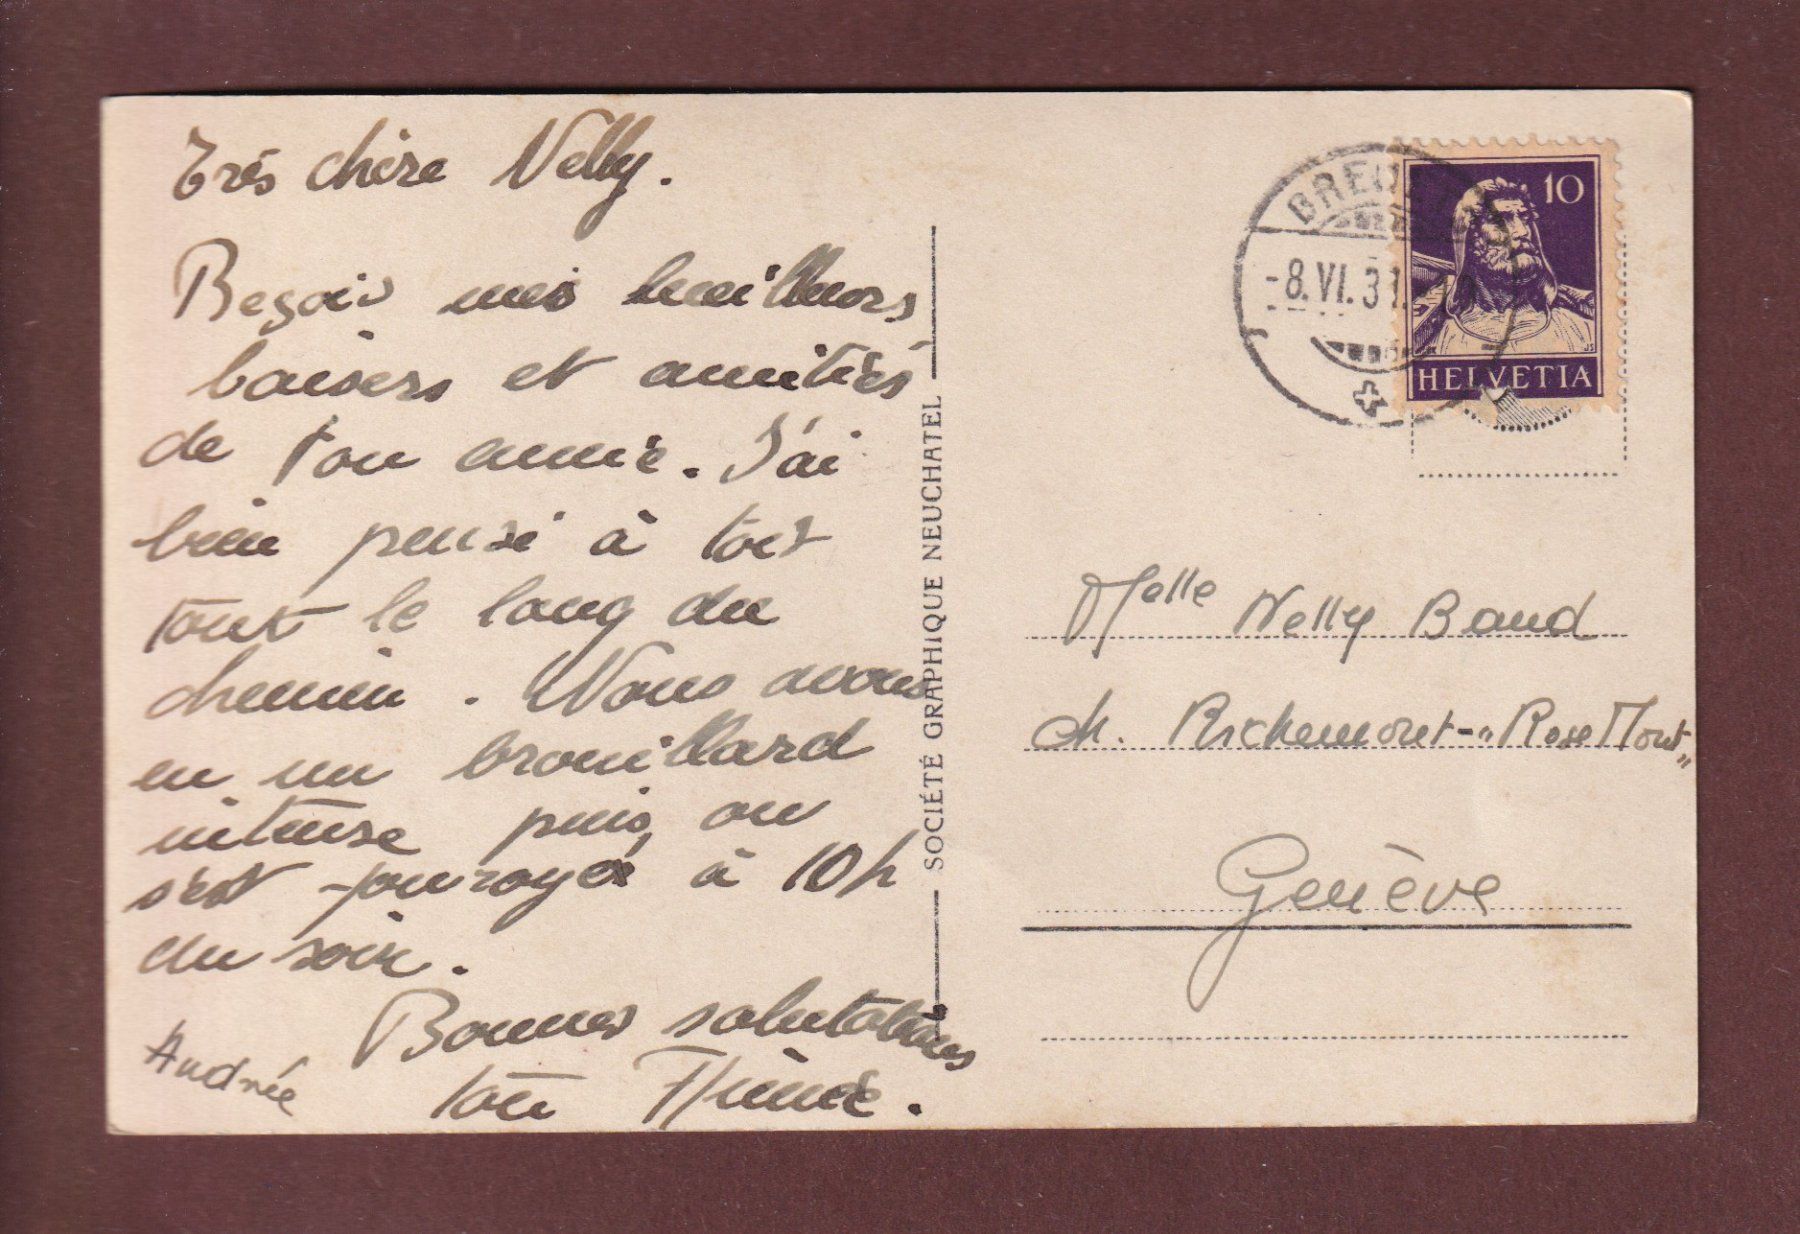 Très chère Nelly.
Reçois mes meilleurs
baisers et amitiés
de ton amie. J'ai
bien pensé à toi
tout le long du
chemin. Nous avons
eu un brouillard
intense puis, on
s'est fourvoyé à 10h
du soir.
Bonnes salutations
ton
Andrée
SOCIÉTÉ GRAPHIQUE NEUCHATEL
-8.VI.31.
10
HELVETIA
Melle Nelly Baud
ch. Richemont - "RoseMont"
Genève